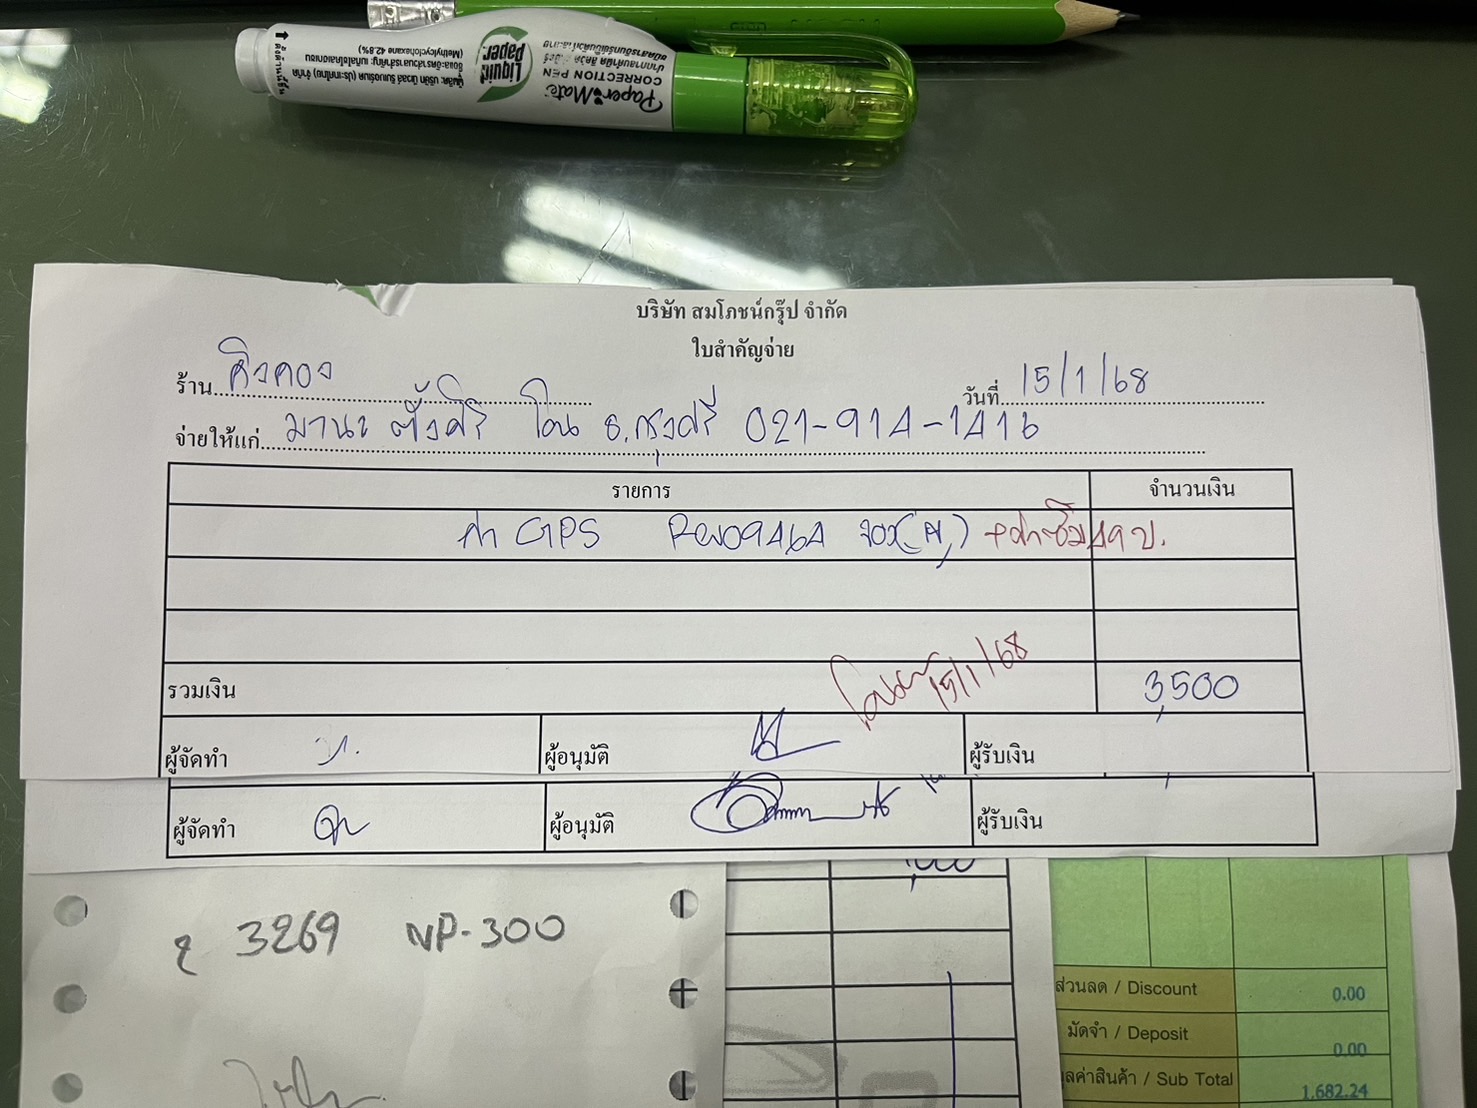 Paper Mate
CORRECTION PEN
Liquid Paper
(Methylcyclohexane 42.8%)
บริษัท สมโภชน์กรุ๊ป จำกัด
ใบสำคัญจ่าย
ร้าน คิงคอง
วันที่ 15/1/68
จ่ายให้แก่ มานะ ตั้งศิริ โอน ธ.กรุงศรี 021-914-1416
รายการ จำนวนเงิน
ค่า GPS
15/1/68
รวมเงิน 3,500
ผู้จัดทำ ผู้อนุมัติ ผู้รับเงิน
ผู้จัดทำ ผู้อนุมัติ ผู้รับเงิน
3269 NP-300
ส่วนลด / Discount 0.00
มัดจำ / Deposit 0.00
ลค่าสินค้า / Sub Total 1,682.24